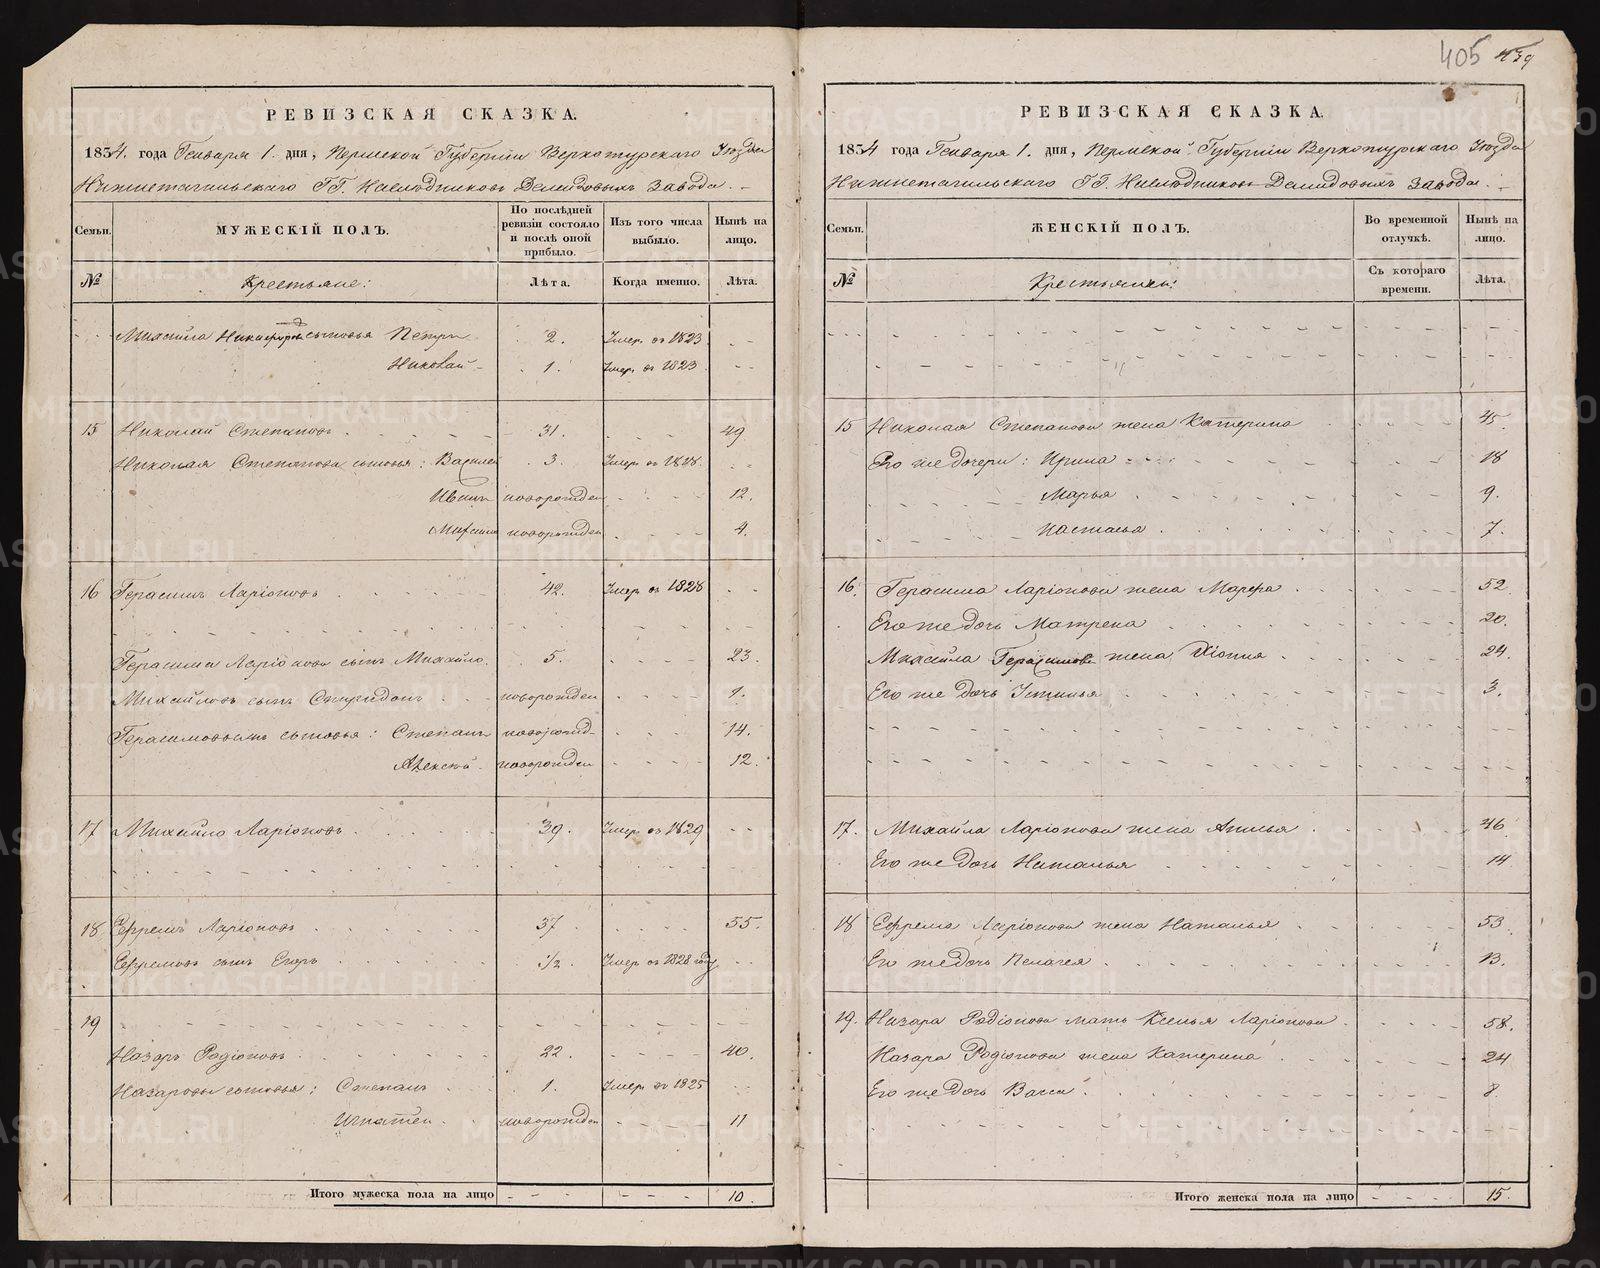 405 439
РЕВИЗСКАЯ СКАЗКА.
1834. года Генваря 1. дня, Пермской Губерніи Верхотурскаго Уѣзда
Нижнетагильскаго ГГ. Наслѣдниковъ Демидовыхъ Завода.
Семьи. МУЖЕСКІЙ ПОЛЪ. По послѣдней ревизіи состояло и послѣ оной прибыло. Изъ того числа выбыло. Нынѣ на лицо.
№ Крестьяне: Лѣта. Когда именно. Лѣта.
Михайла Никифорова сыновья Петръ 2. Умер. въ 1823
Николай 1. Умер. въ 1823
15 Николай Степановъ 31. 49
Николая Степанова сыновья: Василей 3. Умер. въ 1818.
Иванъ новорожден 12.
Михайло новорожден 4.
16 Герасимъ Ларіоновъ 42. Умер. въ 1828
Герасима Ларіонова сынъ Михайло. 5. 23.
Михайловъ сынъ Спиридонъ новорожден 1.
Герасимовы сыновья: Степанъ новорожд 14.
Алексѣй новорожден 12.
17 Михайло Ларіоновъ 39. Умер. въ 1829
18 Ефремъ Ларіоновъ 37 55.
Ефремовъ сынъ Егоръ 1/2. Умер. въ 1828 году
19
Назаръ Родіоновъ 22. 40.
Назаровы сыновья: Степанъ 1. Умер. въ 1825
Игнатей новорожден 11
Итого мужеска пола на лицо 10.
РЕВИЗСКАЯ СКАЗКА.
1834 года Генваря 1. дня, Пермской Губерніи Верхотурскаго Уѣзда
Нижнетагильскаго ГГ. Наслѣдниковъ Демидовыхъ Завода.
Семьи. ЖЕНСКІЙ ПОЛЪ. Во временной отлучкѣ. Нынѣ на лицо.
№ Крестьянки: Съ котораго времени. Лѣта.
15 Николая Степанова жена Катерина 45.
Его же дочери: Ирина 18
Марья 9.
Настасья 7.
16. Герасима Ларіонова жена Марфа 52
Его же дочь Матрена 20.
Михайла Герасимова жена Хіонія 24.
Его же дочь Устинья 3.
17. Михайла Ларіонова жена Анисья 46
Его же дочь Наталья 14
18 Ефрема Ларіонова жена Наталья 53
Его же дочь Пелагея 13.
19. Назара Родіонова мать Ксенья Ларіонова 58.
Назара Родіонова жена Катерина 24
Его же дочь Васса 8
Итого женска пола на лицо 15.
METRIKI.GASO-URAL.RU